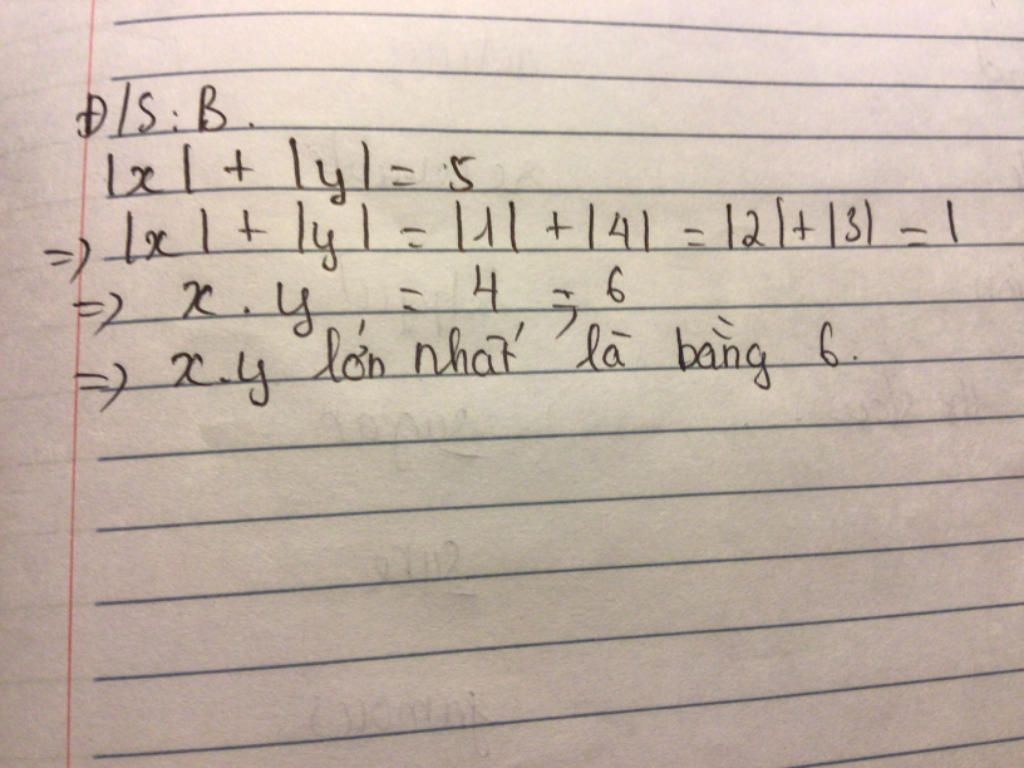 Đ/S: B.
|x| + |y| = 5
=> |x| + |y| = |1| + |4| = |2| + |3| = |
=> x . y = 4 ; = 6
=> x.y lớn nhất là bằng 6.